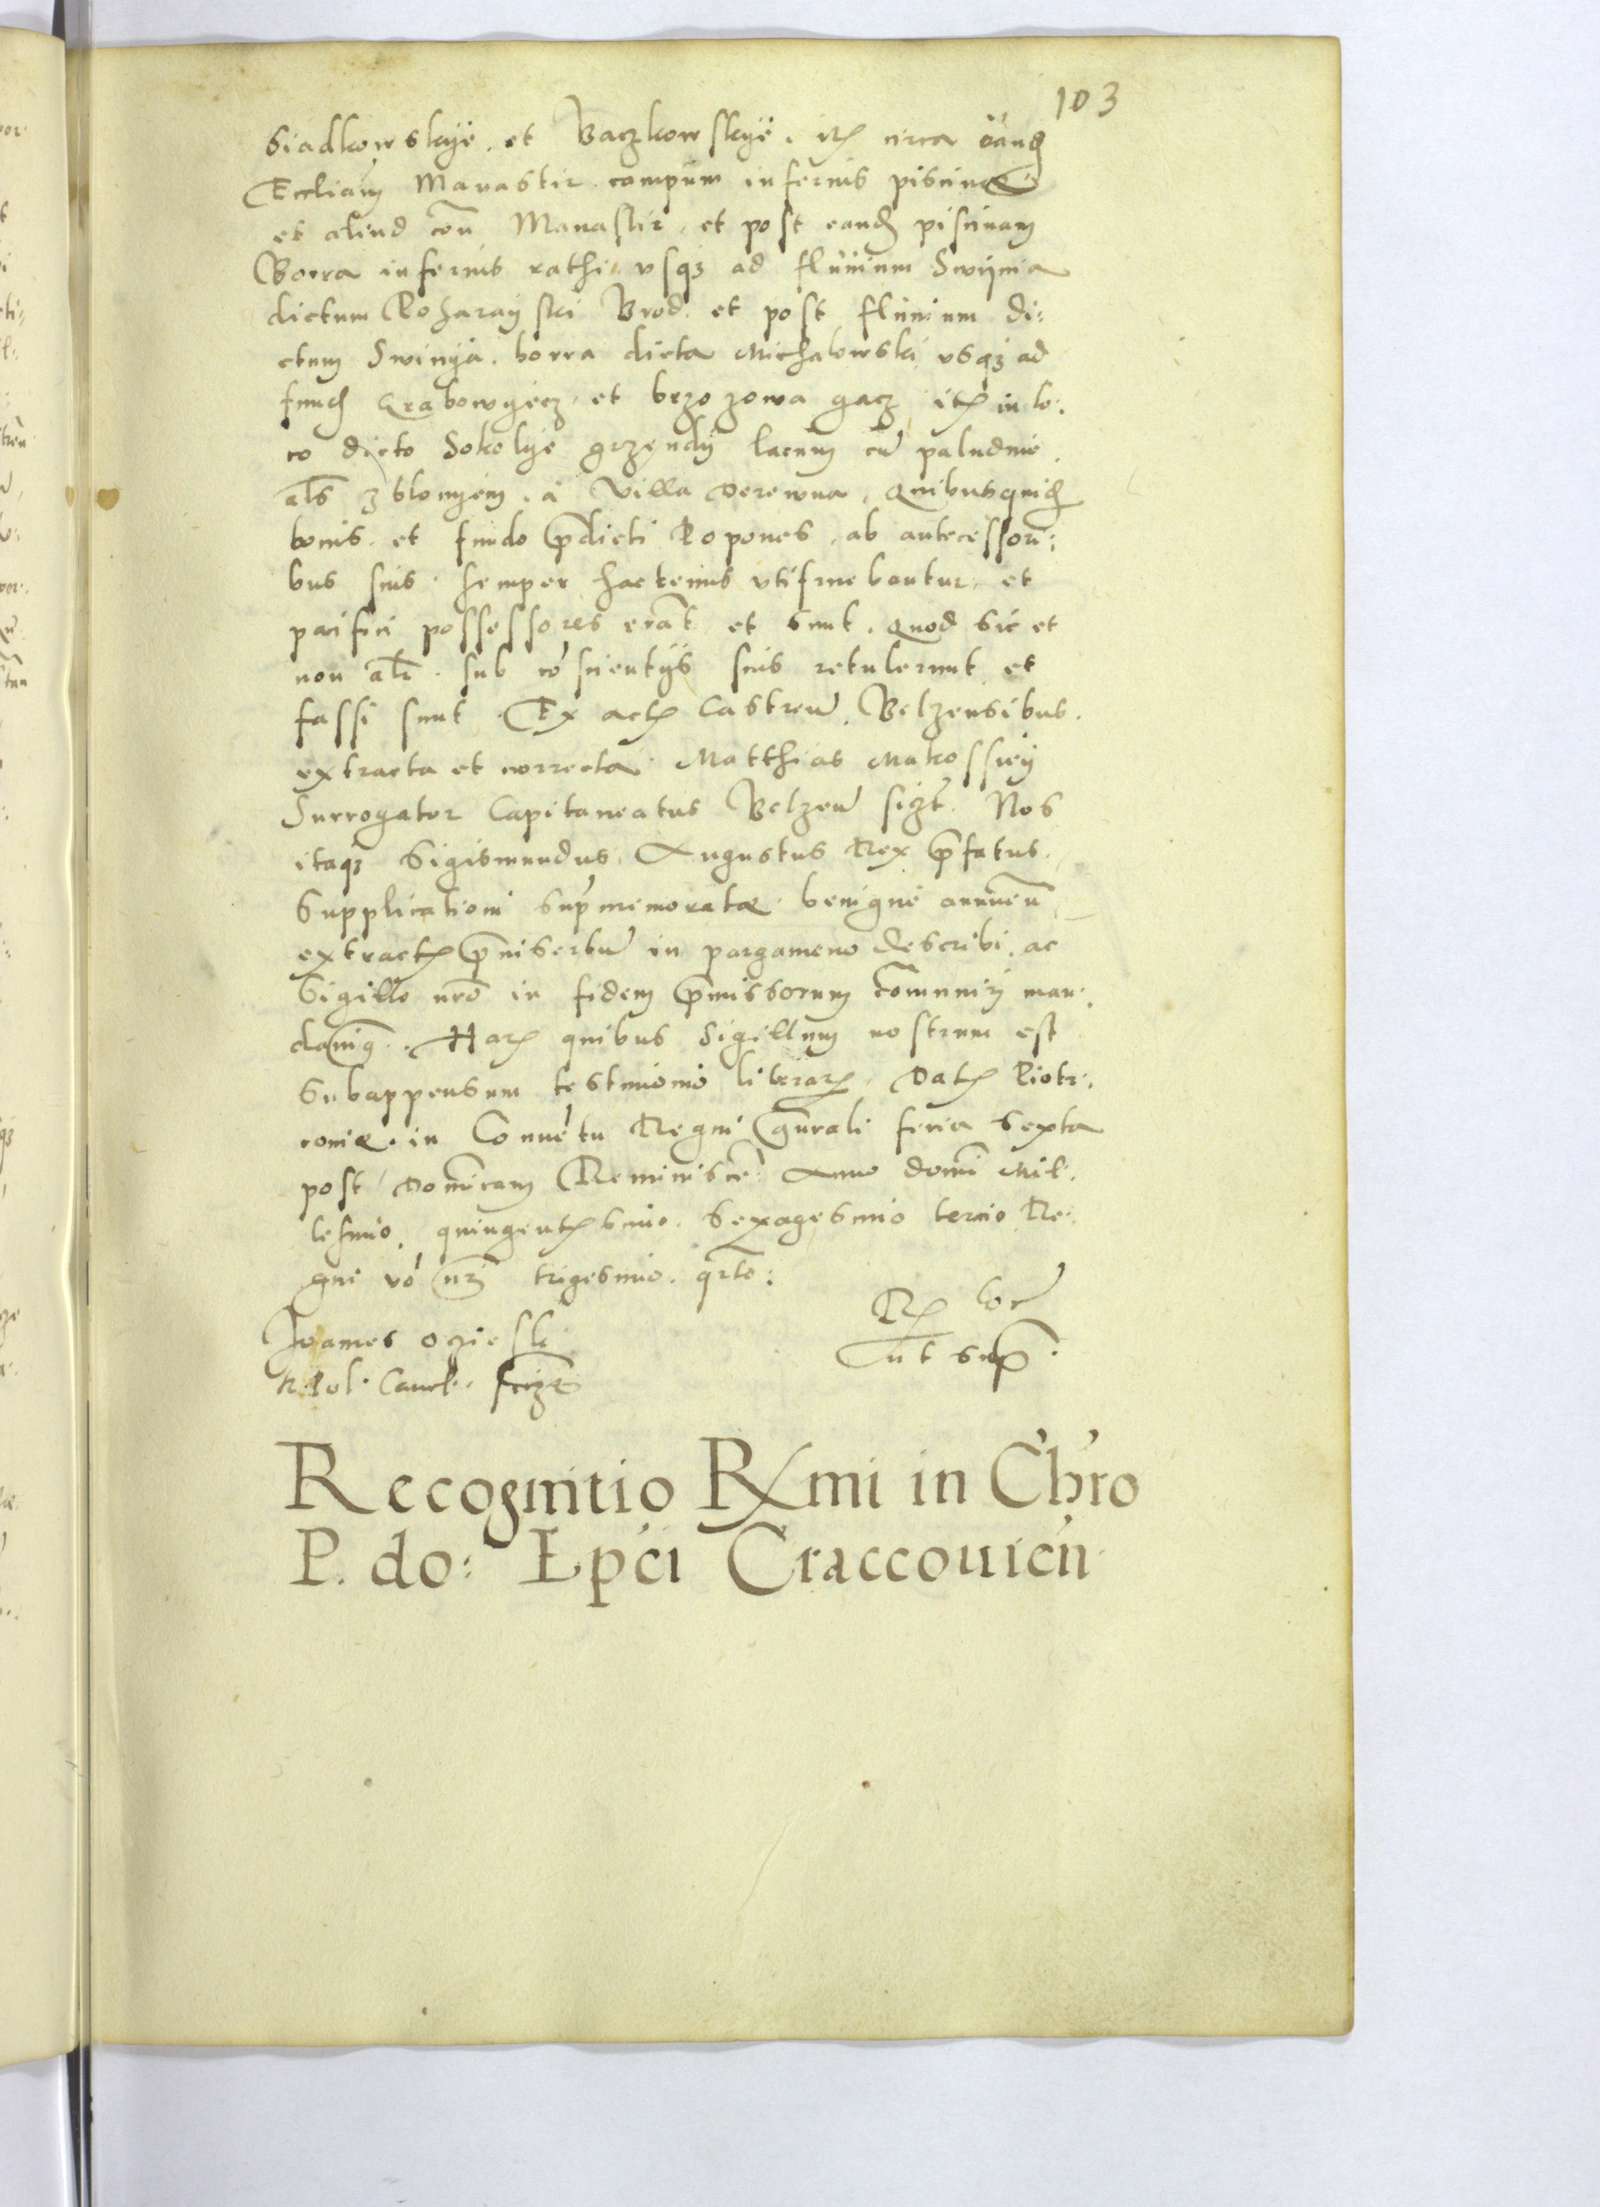 103
Siadkowskye. et Baczkowskye. itē circa eand̄
Eccliam Manastir campum inferius piscinæ
et aliud coū Manastir. et post eand̄ piscinam
Borra inferius rathi. vsq3 ad fluuium Swynia
dictum Roharayski Brod. et post fluuium di:
ctum Swinya. borra dicta Michalowski vsq3 ad
fund̄ Grabowyecz. et brzozowa gacz itē in lo:
co dicto Sokolye grzendy lacum cū paludine
al̄s zblonyem. a villa Derewna. Quibusquid̄
bonis. et fundo p̄dicti Popones. ab antecessori:
bus suis. semper hactenus vtifruebantur. et
pacifici possessores erāt et sunt. Quod sic et
non alr̄. sub cōscientijs suis retulerunt et
fassi sunt. Ex actis Castreñ. Belzensibus.
extracta et correcta. Matthias Makossiey
Surrogator Capitaneatus Belzeñ sszt. Nos
itaq3 Sigismundus. Augustus Rex p̄fatus.
Supplicationi sup̄memoratæ. benigne annueñ
extractū p̄nisertū in pargameno describi. ac
Sigillo nr̄o in fidem p̄missorum cōmuniri man:
dauimq. Harū quibus Sigillum nostrum est
subappensum testimonio literarū. Datū Piotr:
coniæ. in Conuētu Regni gn̄rali feria sexta
post Domīcam Reminiscē. Anno domī Mil:
lesimo. quingentesimo. sexagesimo tercio Re:
gni vō nr̄i trigesimo. qr̄to:
Joannes Ocziesk
R. Pol. Canc. sszt
Rō cor
ut sup̄.
Recognitio Rx̄mi in Chr̄o
P. do: Ep̄ci Craccouieñ